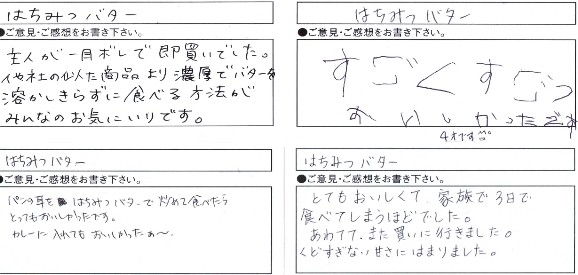 はちみつバター
●ご意見・ご感想をお書き下さい。
主人が一目ボレで即買いでした。
他社の似た商品より濃厚でバターを
溶かしきらずに食べる方法が
みんなのお気にいりです。
はちみつバター
●ご意見・ご感想をお書き下さい。
すごくすごっ
おいしかったです
4才です
はちみつバター
●ご意見・ご感想をお書き下さい。
パンの耳をはちみつバターで炒めて食べたら
とってもおいしかったです。
カレーに入れてもおいしかったぁ〜。
はちみつバター
●ご意見・ご感想をお書き下さい。
とてもおいしくて、家族で3日で
食べてしまうほどでした。
あわてて、また買いに行きました。
くどすぎない甘さにはまりました。